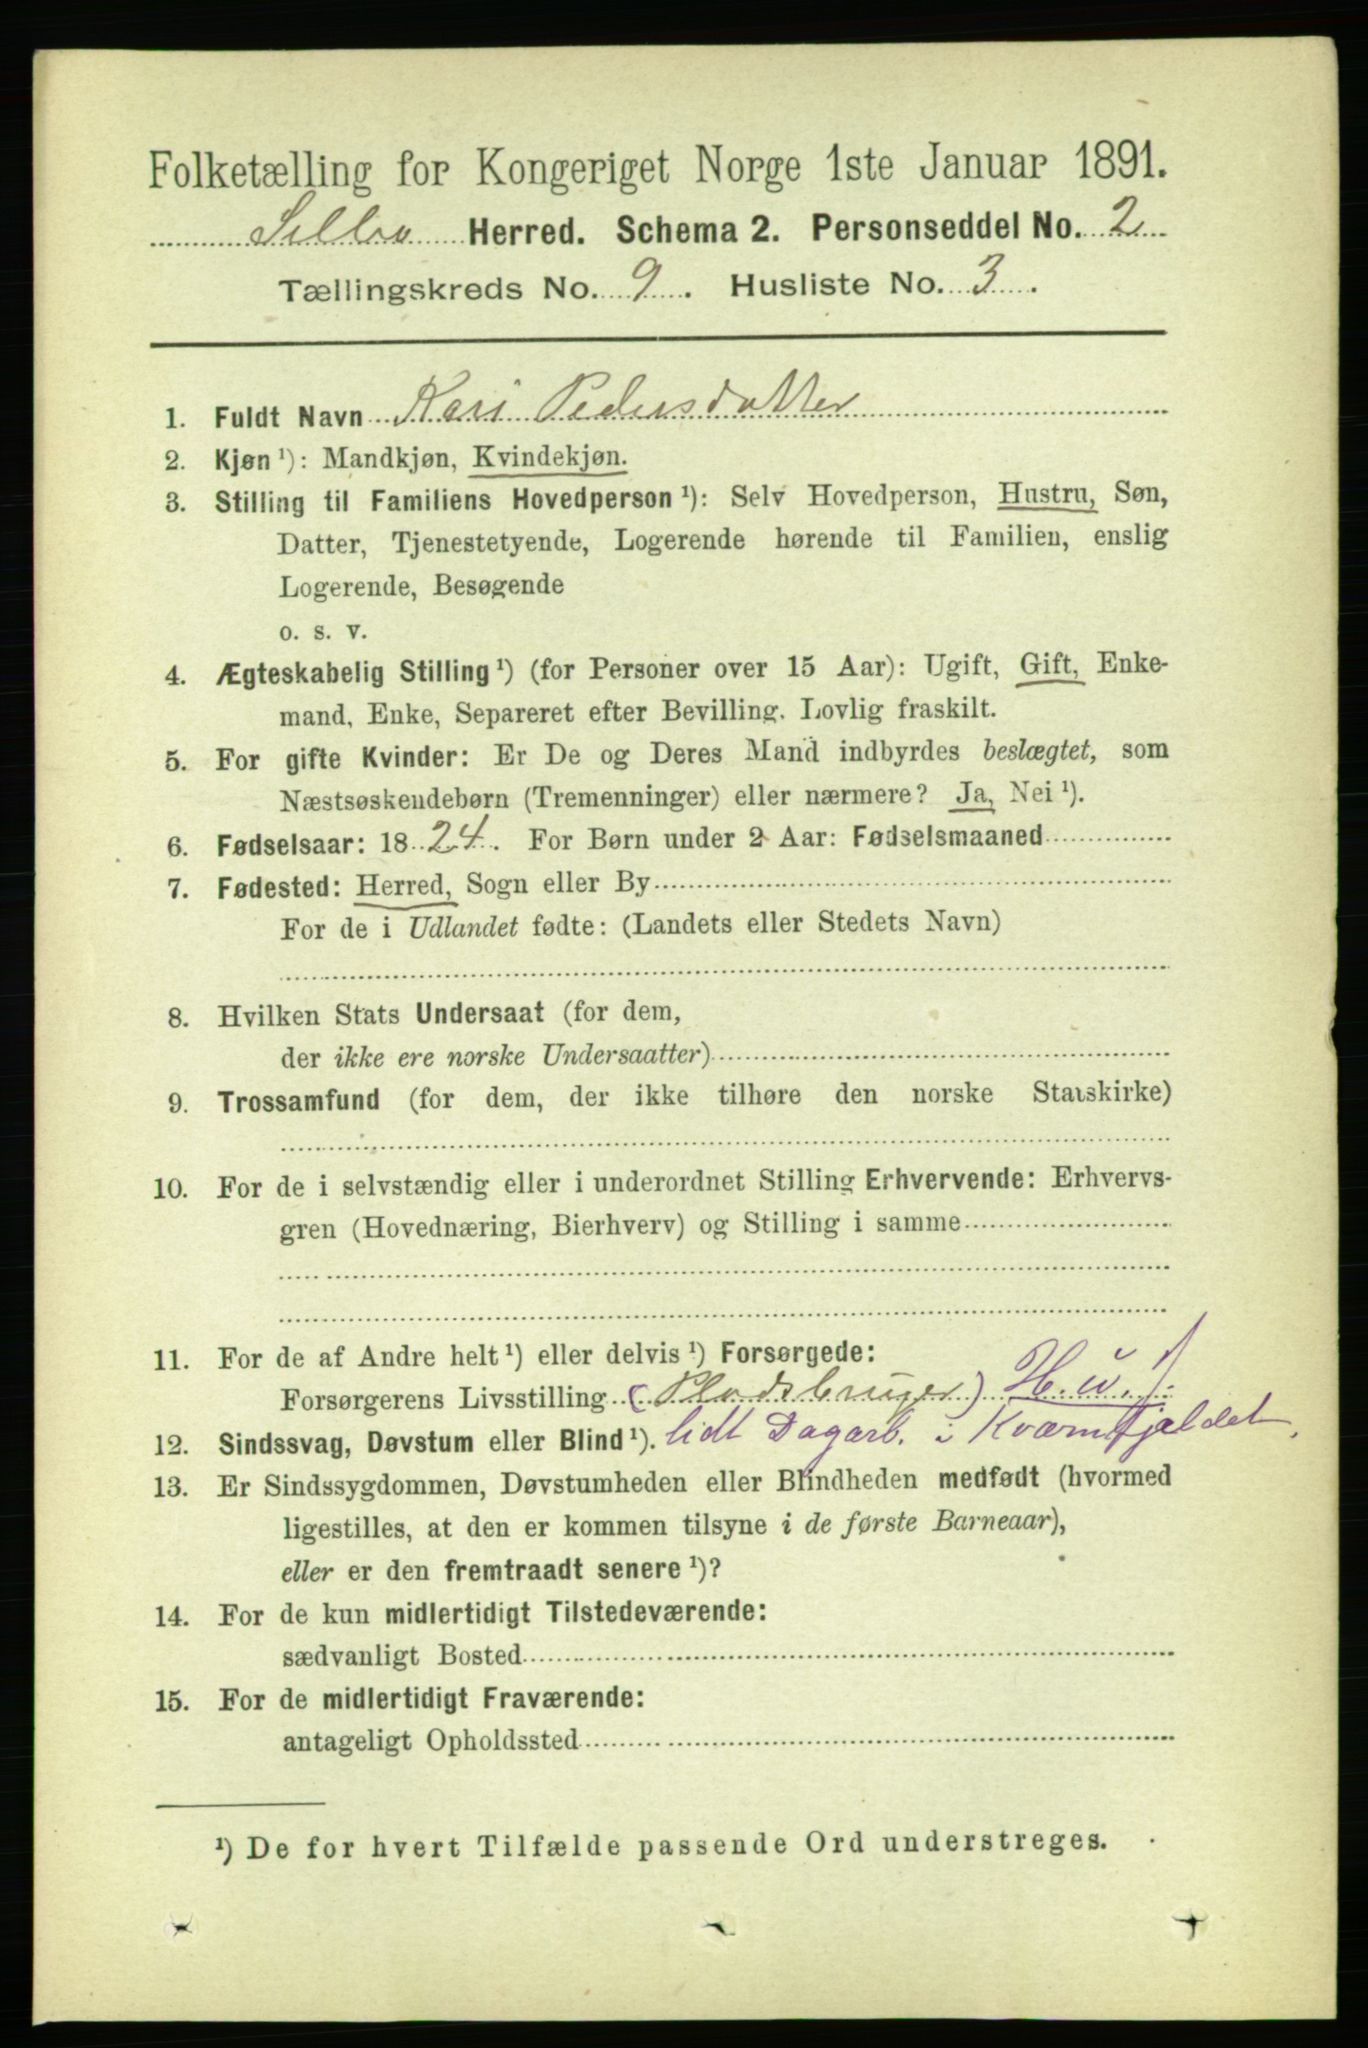 Folketælling for Kongeriget Norge 1ste Januar 1891.
Selbu Herred. Schema 2. Personseddel No. 2
Tællingskreds No. 9. Husliste No. 3.
1. Fuldt Navn Kari Pedersdatter
2. Kjøn ¹): Mandkjøn, Kvindekjøn.
3. Stilling til Familiens Hovedperson ¹): Selv Hovedperson, Hustru, Søn,
Datter, Tjenestetyende, Logerende hørende til Familien, enslig
Logerende, Besøgende
o. s. v.
4. Ægteskabelig Stilling ¹) (for Personer over 15 Aar): Ugift, Gift, Enke-
mand, Enke, Separeret efter Bevilling. Lovlig fraskilt.
5. For gifte Kvinder: Er De og Deres Mand indbyrdes beslægtet, som
Næstsøskendebørn (Tremenninger) eller nærmere? Ja, Nei ¹).
6. Fødselsaar: 1824. For Børn under 2 Aar: Fødselsmaaned
7. Fødested: Herred, Sogn eller By
For de i Udlandet fødte: (Landets eller Stedets Navn)
8. Hvilken Stats Undersaat (for dem,
der ikke ere norske Undersaatter)
9. Trossamfund (for dem, der ikke tilhøre den norske Statskirke)
10. For de i selvstændig eller i underordnet Stilling Erhvervende: Erhvervs-
gren (Hovednæring, Bierhverv) og Stilling i samme
11. For de af Andre helt ¹) eller delvis ¹) Forsørgede:
Forsørgerens Livsstilling (Pladsbruger) H. u. f.
12. Sindssvag, Døvstum eller Blind ¹). lidt Dagarb. i Kværnfjeldet.
13. Er Sindssygdommen, Døvstumheden eller Blindheden medfødt (hvormed
ligestilles, at den er kommen tilsyne i de første Barneaar),
eller er den fremtraadt senere ¹)?
14. For de kun midlertidigt Tilstedeværende:
sædvanligt Bosted
15. For de midlertidigt Fraværende:
antageligt Opholdssted
¹) De for hvert Tilfælde passende Ord understreges.